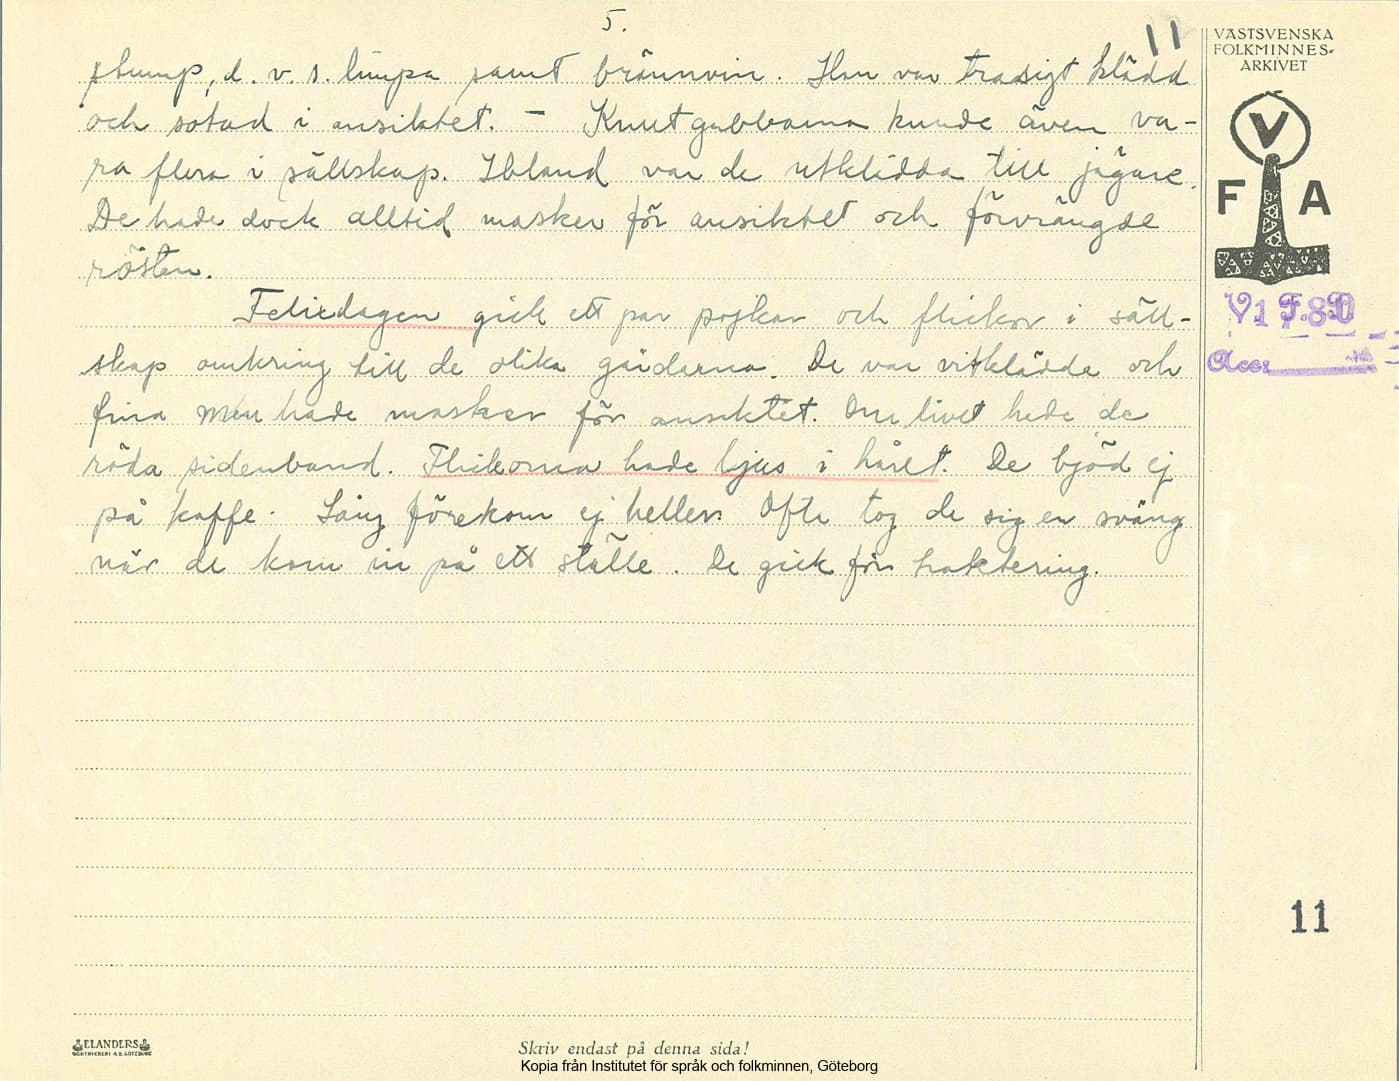 5.
11
VÄSTSVENSKA
FOLKMINNES-
ARKIVET
V
F A
stump, d. v. s. limpa samt brännvin. Han var trasigt klädd
och sotad i ansiktet. – Knutgubbarna kunde även va-
ra flera i sällskap. Ibland var de utklädda till jägare.
De hade dock alltid masker för ansiktet och förvrängde
rösten.
Felixdagen gick ett par pojkar och flickor i säll-
skap omkring till de olika gårdarna. De var vitklädda och
fina men hade masker för ansiktet. Om livet hade de
röda sidenband. Flickorna hade ljus i håret. De bjöd ej
på kaffe. Sång förekom ej heller. Ofta tog de sig en sväng
när de kom in på ett ställe. De gick för traktering.
Acc:
11
ELANDERS
BOKTRYCKERI A.B. GÖTEBORG
Skriv endast på denna sida!
Kopia från Institutet för språk och folkminnen, Göteborg